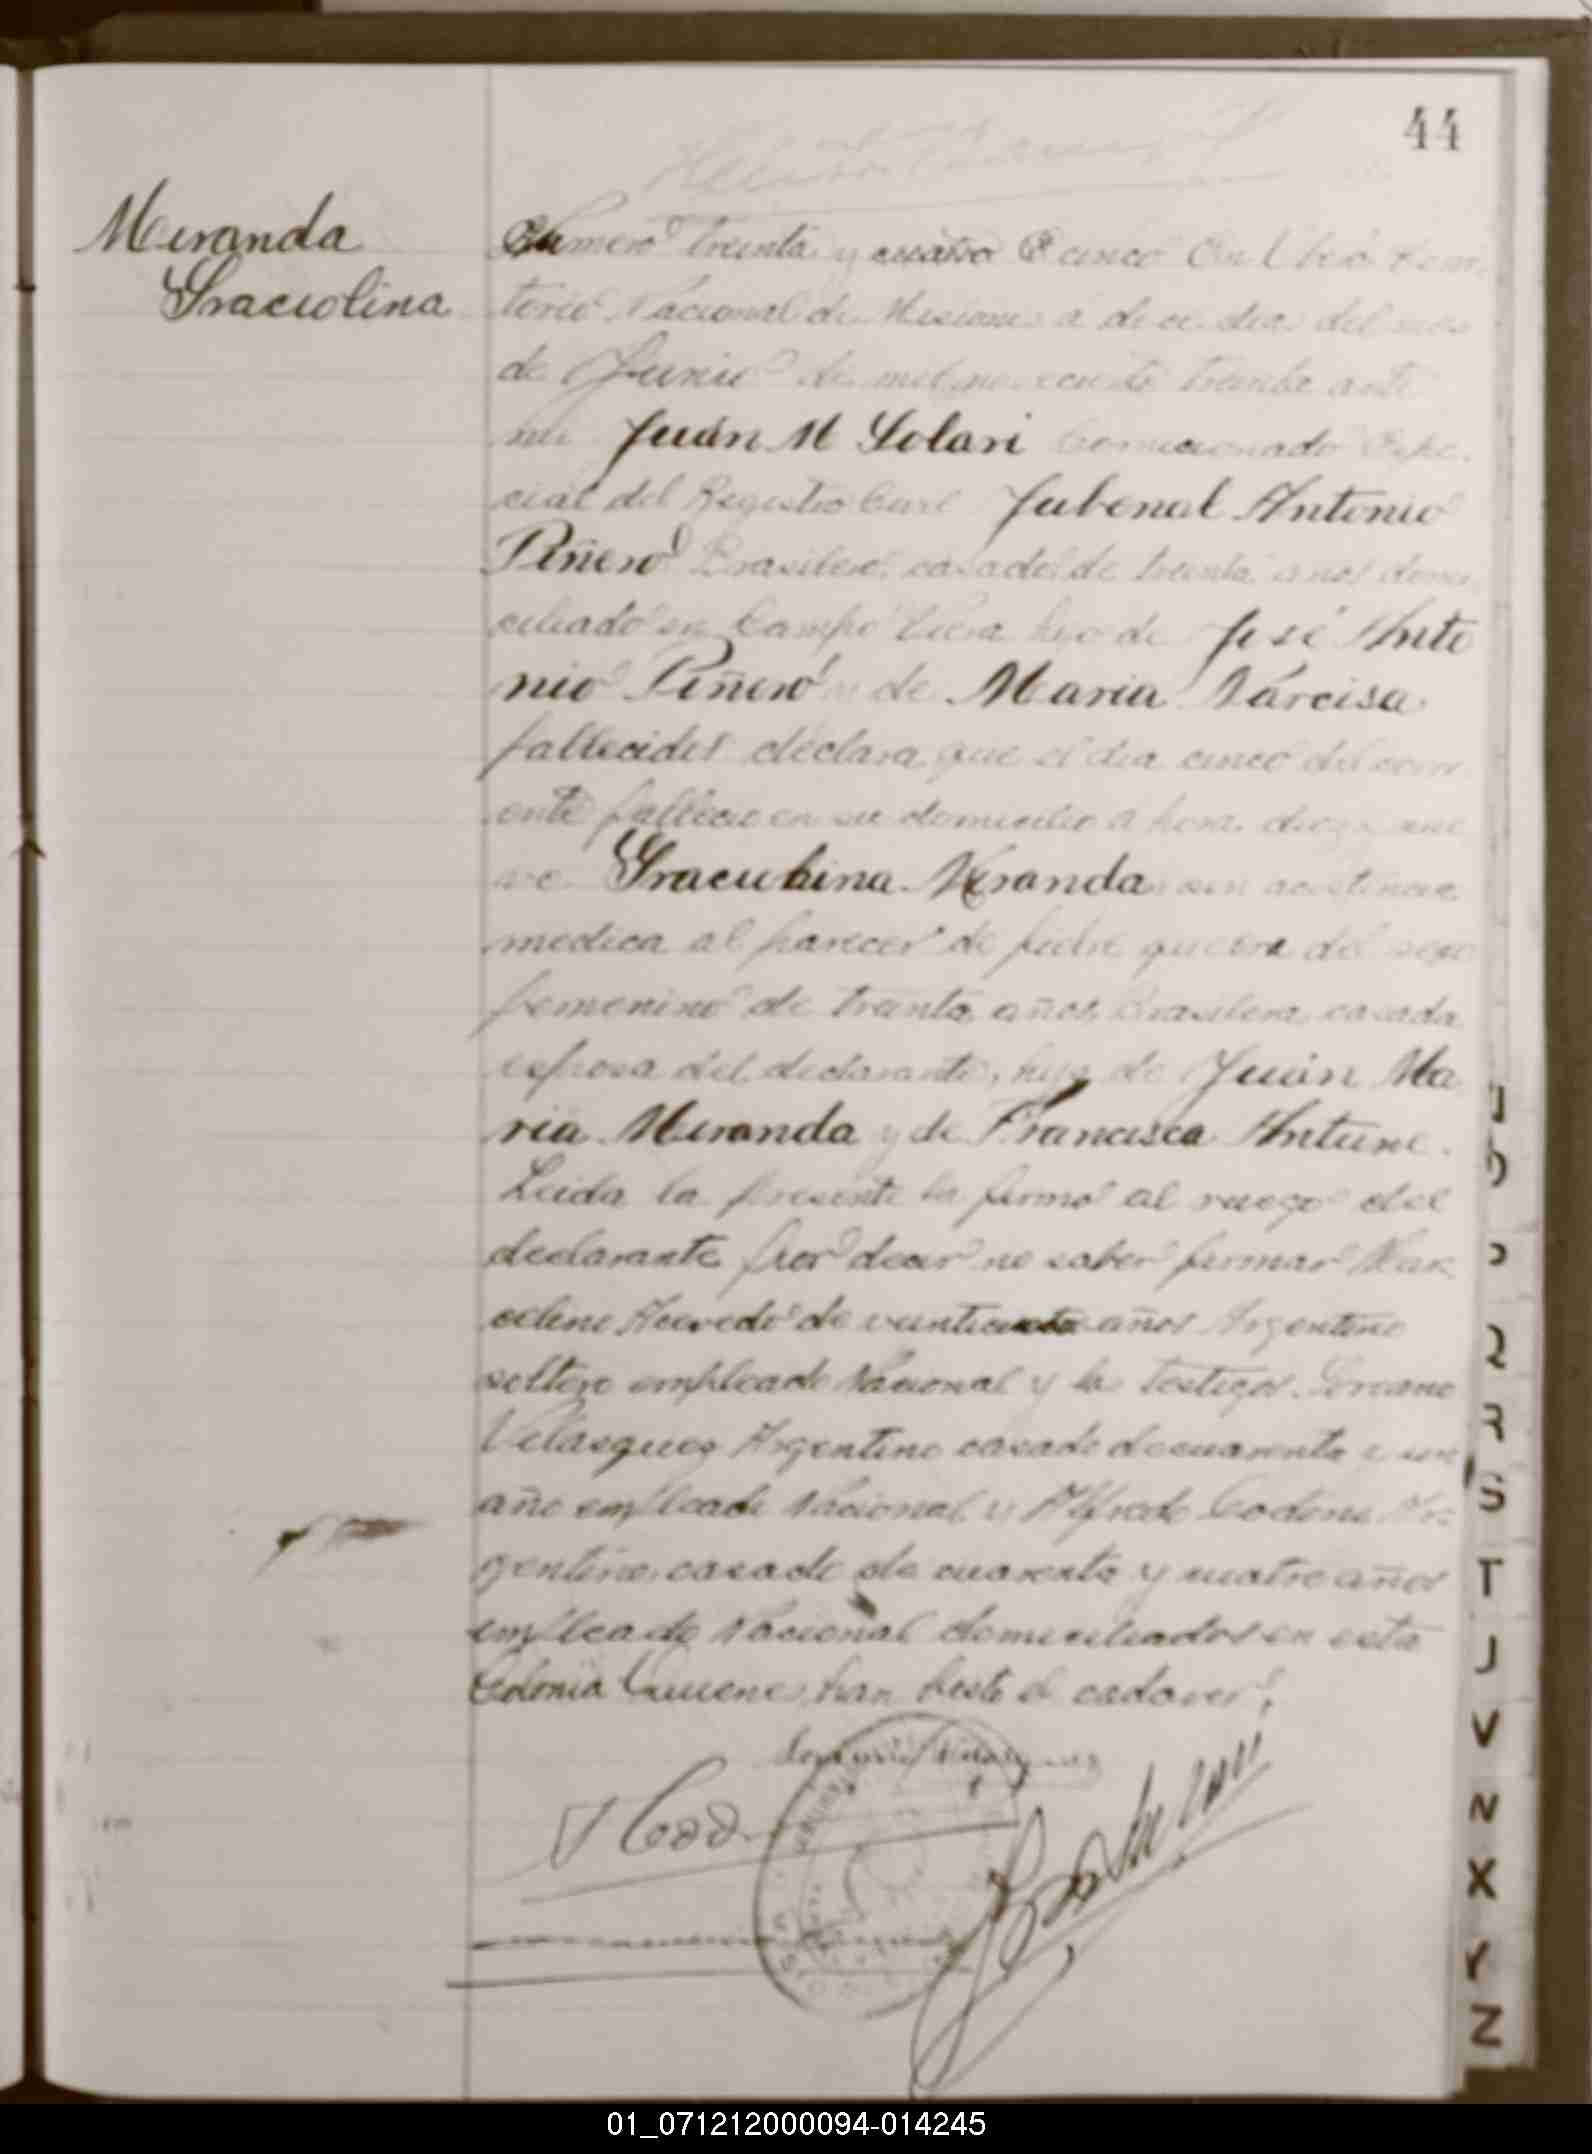 44
Miranda
Graciolina
Numero treinta y cuatro cinco En Oberá Terri
torio Nacional de Misiones a dias del mes
de Junio de mil novecientos treinta ante
mi Juan M Solari Comicionado Espe
cial del Registro Civil Jubenal Antonio
Piñero Brasilero, casado de treinta años domi
ciliado en Campo Viera hijo de José Anto
nio Piñero y de Maria Narcisa
fallecidos declara que el dia cinco del corri
ente fallecio en su domicilio a hora diez y nue
ve Miranda sin acistencia
medica al parecer de fiebre que era del sexo
femenino de treinta años, Brasilera, casada
esposa del declarante, hija de Juan Ma
ria Miranda y de Francisca Antune.
Leida la presente la firmó al ruego del
declarante por decir no saber firmar Mar
celino Acevedo de años Argentino
soltero empleado Nacional y los testigos
Velasquez Argentino casado de cuarenta y un
año empleado Nacional y Alfredo Ar=
gentino, casado de cuarenta y cuatro años
empleado Nacional domiciliados en esta
Colonia han bisto el cadaver.
D
P
Q
R
S
T
V
N
X
Y
Z
01_071212000094-014245